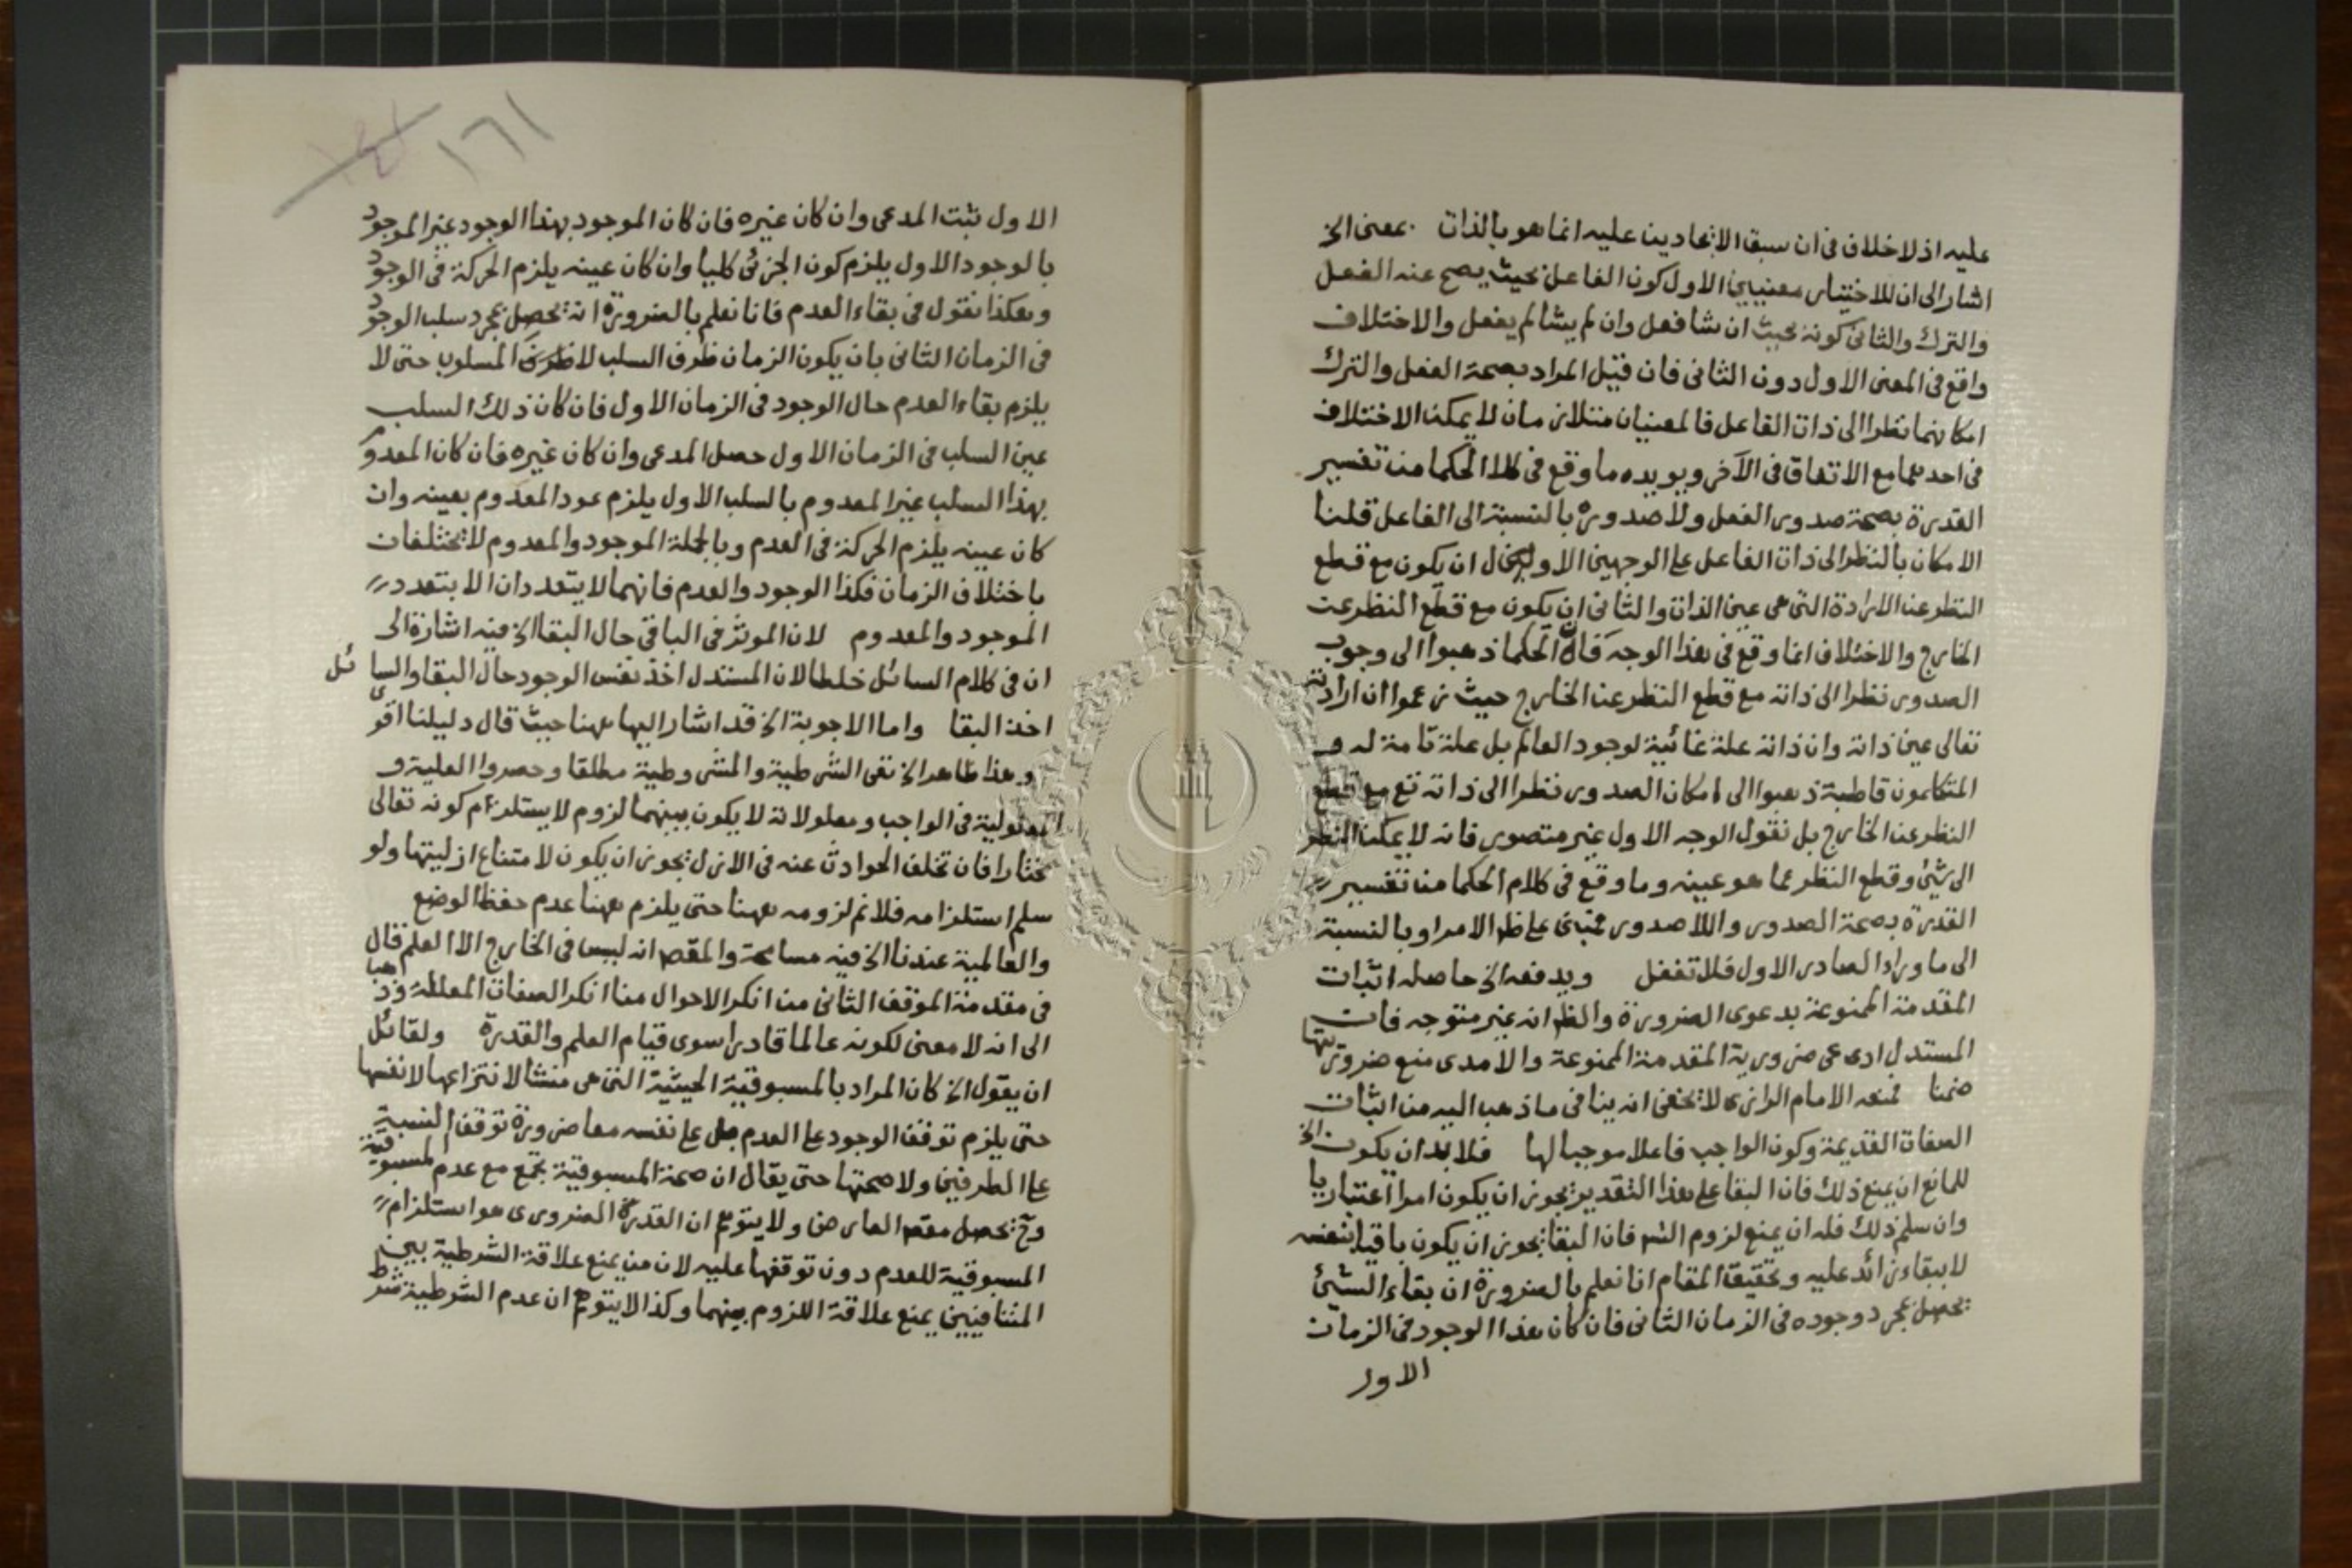 عليه اذ لا خلاف فى ان سبق الايجادين عليه انما هو بالذات بمعنى الخ
اشار الى ان للاختيار معنيين الاول كون الفاعل بحيث يصح عنه الفعل
والترك والثانى كونه بحيث ان شا فعل وان لم يشا لم يفعل والاختلاف
واقع فى المعنى الاول دون الثانى فان قيل المراد بصحة الفعل والترك
امكانهما نظرا الى ذات الفاعل فالمعنيان متلازمان لا يمكن الاختلاف
فى احدهما مع الاتفاق فى الآخر ويويده ما وقع فى كلام الحكما من تفسير
القدرة بصحة صدور الفعل ولا صدوره بالنسبة الى الفاعل قلنا
الامكان بالنظر الى ذات الفاعل على الوجهين الاول ان يكون مع قطع
النظر عن الارادة التى هى عين الذات والثانى ان يكون مع قطع النظر عن
الخارج والاختلاف انما وقع فى هذا الوجه فان الحكما ذهبوا الى وجوب
الصدور نظرا الى ذاته مع قطع النظر عن الخارج حيث زعموا ان ارادته
تعالى عين ذاته وان ذاته علة غائية لوجود العالم بل علة تامة له و
المتكلمون قاطبة ذهبوا الى امكان الصدور نظرا الى ذاته تع مع قطع
النظر عن الخارج بل نقول الوجه الاول غير متصور فانه لا يمكن النظر
الى شيئ وقطع النظر عما هو عينه وما وقع فى كلام الحكما من تفسير
القدرة بصحة الصدور واللا صدور مبنى على ظ الامر او بالنسبة
الى ما وراء الصادر الاول فلا تغفل ويدفعه الخ حاصله اثبات
المقدمة الممنوعة بدعوى الضرورة والظ انه غير متوجه فان
المستدل ادعى ضرورية المقدمة الممنوعة والامدى منع ضروريتها
ضمنا فمنعه الامام الرازى لا يخفى انه ينافى ما ذهب اليه من اثبات
الصفات القديمة وكون الواجب فاعلا موجبا لها فلا بد ان يكون الخ
للمانع ان يمنع ذلك فان البقا على هذا التقدير يجوز ان يكون امرا اعتباريا
وان سلم ذلك فله ان يمنع لزوم التس فان البقا يجوز ان يكون باقيا بنفسه
لا ببقاء زائد عليه وتحقيق المقام انا نعلم بالضرورة ان بقاء الشيئ
يحصل بمجرد وجوده فى الزمان الثانى فان كان هذا الوجود فى الزمان
الاول
١٦١
الاول ثبت المدعى وان كان غيره فان كان الموجود بهذا الوجود غير الموجود
بالوجود الاول يلزم كون الجزئى كليا وان كان عينه يلزم الحركة فى الوجود
وهكذا نقول فى بقاء العدم فانا نعلم بالضرورة انه يحصل بمجرد سلب الوجود
فى الزمان الثانى بان يكون الزمان ظرف السلب لا ظرف المسلوب حتى لا
يلزم بقاء العدم حال الوجود فى الزمان الاول فان كان ذلك السلب
عين السلب فى الزمان الاول حصل المدعى وان كان غيره فان كان المعدوم
بهذا السلب غير المعدوم بالسلب الاول يلزم عود المعدوم بعينه وان
كان عينه يلزم الحركة فى العدم وبالجملة الموجود والمعدوم لا يختلفان
باختلاف الزمان فكذا الوجود والعدم فانهما لا يتعددان الا بتعدد
الموجود والمعدوم لان الموثر فى الباقى حال البقا الخ فيه اشارة الى
ان فى كلام السائل خلطا لان المستدل اخذ نفس الوجود حال البقا والسائل
اخذ البقا واما الاجوبة الخ قد اشار اليها ههنا حيث قال دليلنا اقوى
وهذا ظاهر الخ نفى الشرطية والمشروطية مطلقا وحصروا العلية و
المعلولية فى الواجب ومعلولاته لا يكون بينهما لزوم لا يستلزم كونه تعالى
مختارا فان تخلف الحوادث عنه فى الازل يجوز ان يكون لامتناع ازليتها ولو
سلم استلزامه فلا نم لزومه ههنا حتى يلزم ههنا عدم حفظ الوضع
والعالمية عندنا الخ فيه مسامحة والمقصد انه ليس فى الخارج الا العلم قال
فى مقدمة الموقف الثانى من انكر الاحوال منا انكر الصفات المعللة وذهبا
الى انه لا معنى لكونه عالما قادرا سوى قيام العلم والقدرة ولقائل
ان يقول الخ كان المراد بالمسبوقية الحيثية التى هى منشا لانتزاعها لا نفسها
حتى يلزم توقف الوجود على العدم بل على نفسه معا ضرورة توقف النسبة
على الطرفين ولا صحتها حتى يقال ان صحة المسبوقية تجتمع مع عدم المسبوقية
وح يحصل مقصد المعارض ولا يتوهم ان القدر الضرورى هو استلزام
المسبوقية للعدم دون توقفها عليه لان من يمنع علاقة الشرطية بين
المتنافيين يمنع علاقة اللزوم بينهما وكذا لا يتوهم ان عدم الشرطية شرط